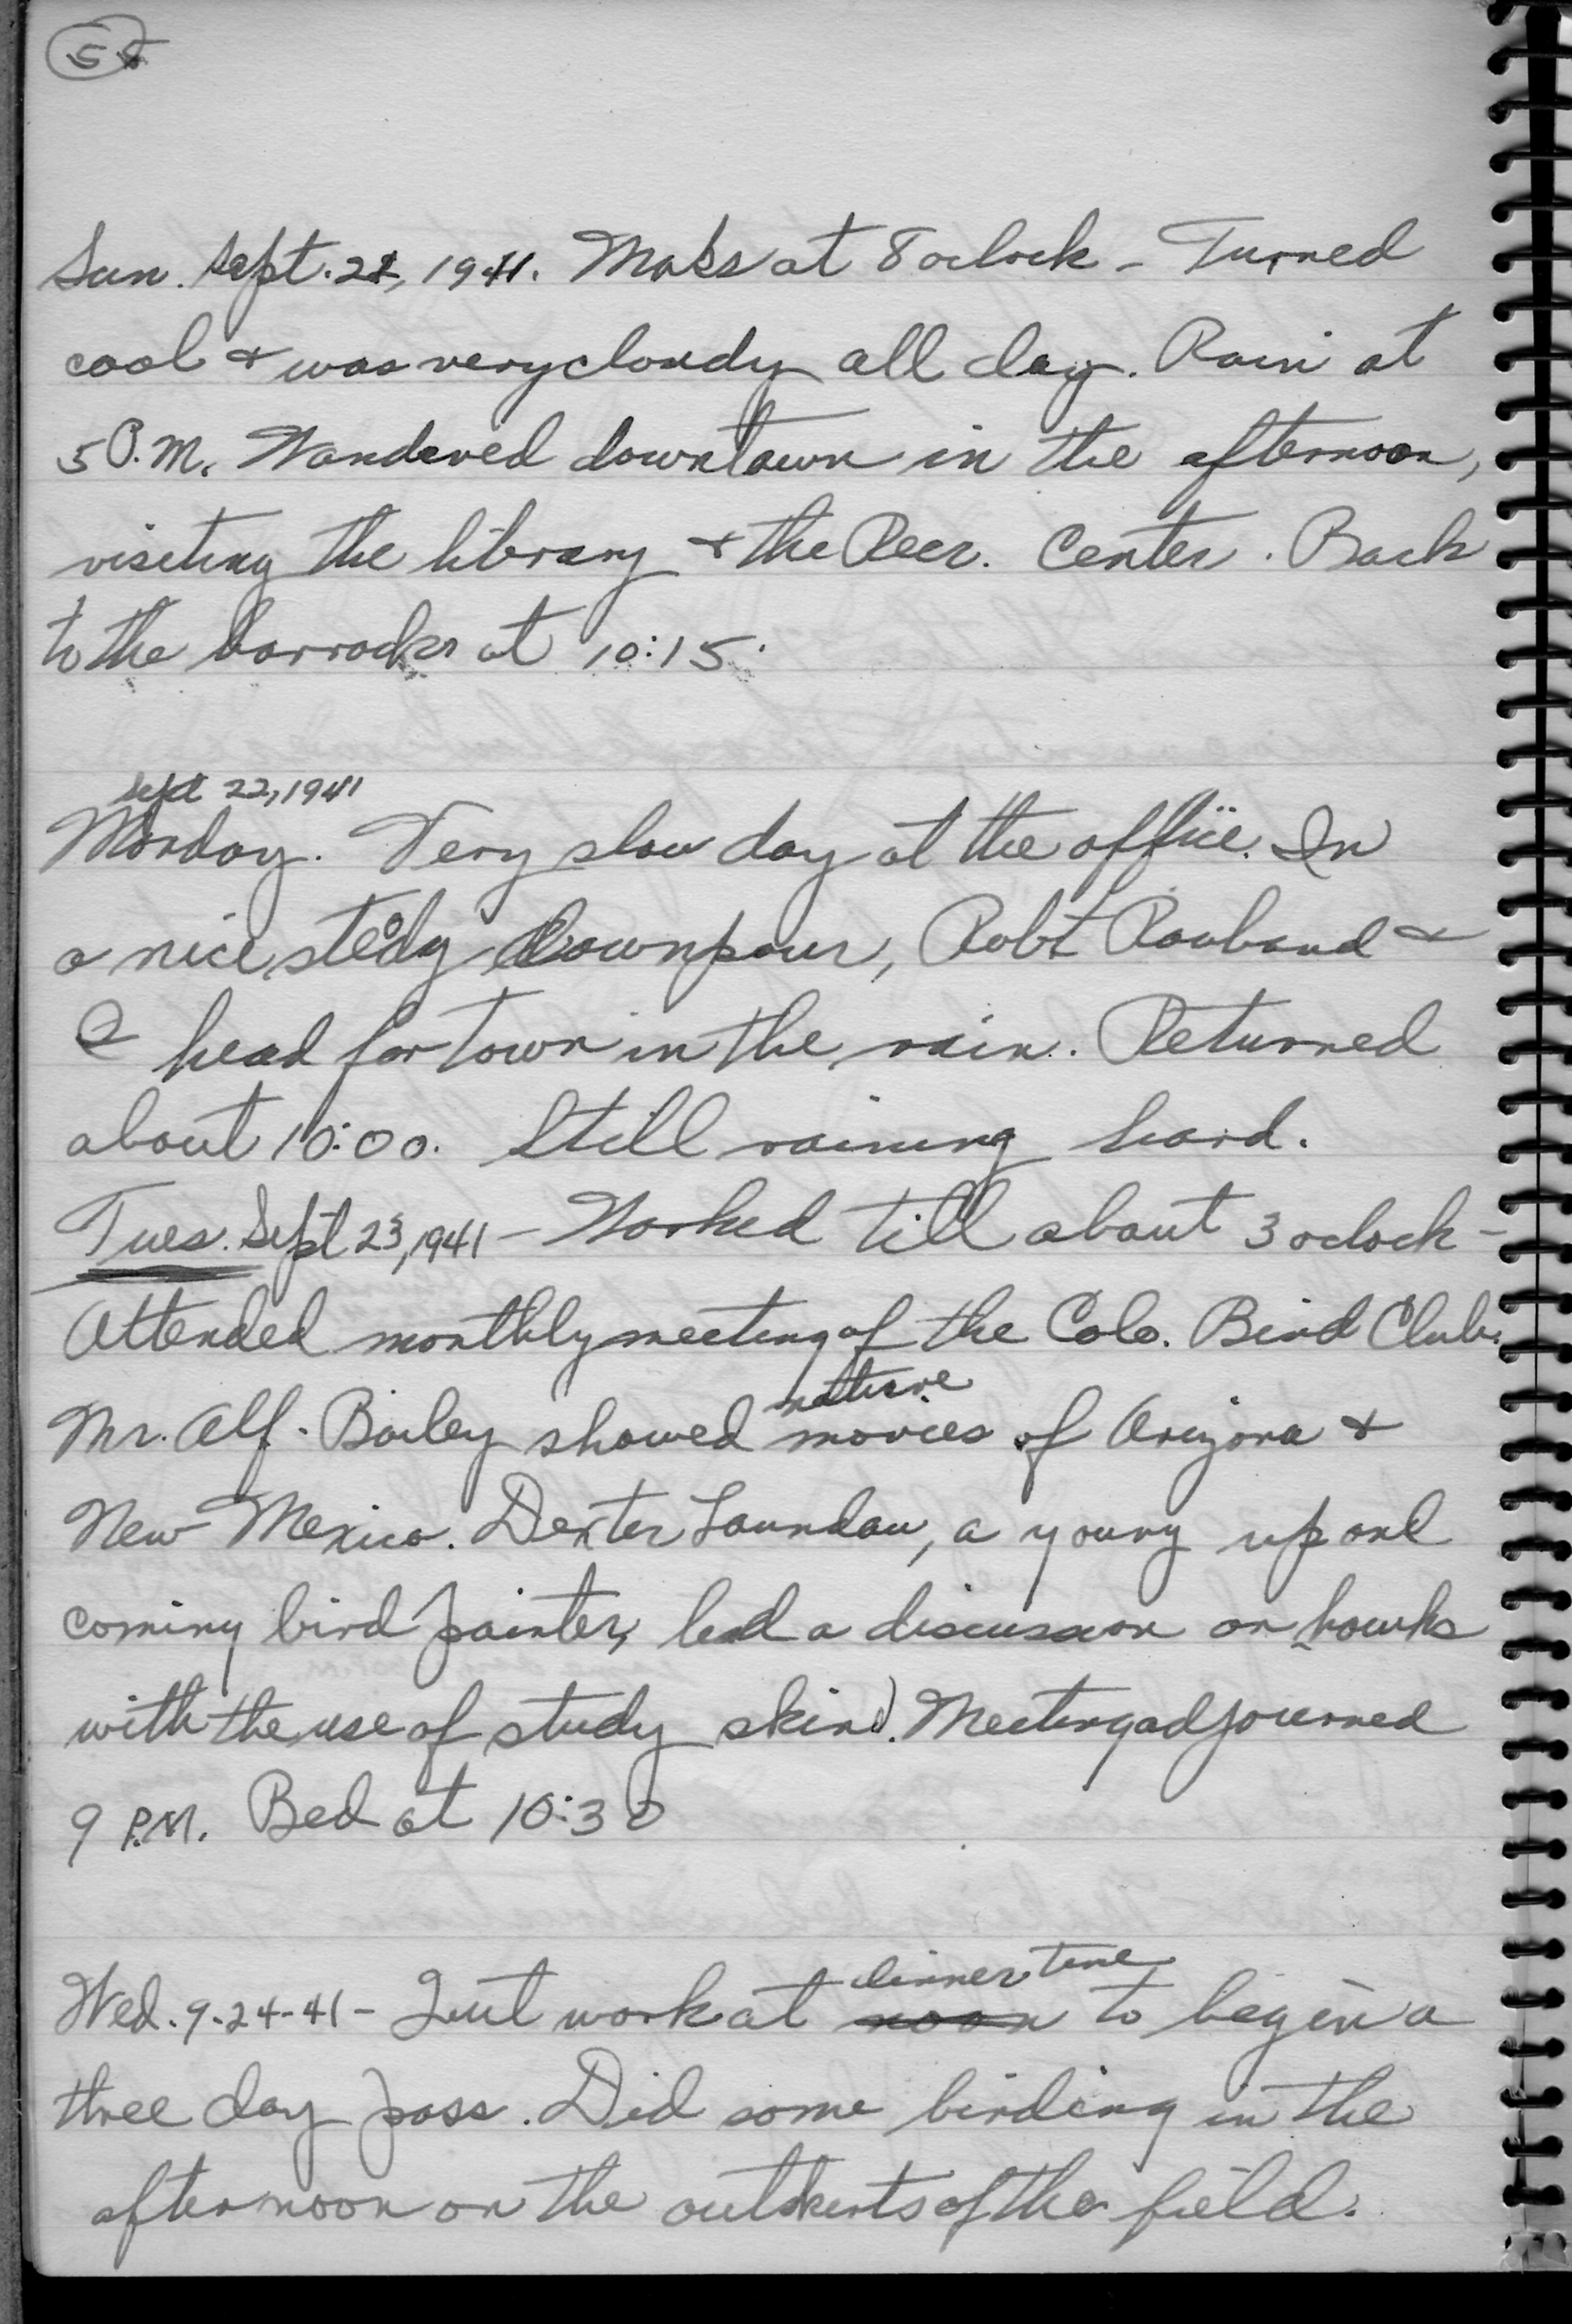 58
Sun. Sept. 21, 1941. Mass at 8 oclock - Turned
cool & was very cloudy all day. Rain at
5 P.M. Wandered downtown in the afternoon,
visiting the library & the Recr. Center. Back
to the barracks at 10:15.
Sept 22, 1941
Monday. Very slow day at the office. In
a nice, stedy downpour, Robt Rauband &
I head for town in the rain. Returned
about 10:00. Still raining hard.
Tues. Sept 23, 1941 - Worked till about 3 oclock -
Attended monthly meeting of the Colo. Bird Club.
nature
Mr. Alf. Bailey showed movies of Arizona &
New Mexico. Dexter Laundau, a young up and
coming bird painter, led a discussion on hawks
with the use of study skins. Meeting adjourned
9 P.M. Bed at 10:30
dinner time
Wed. 9-24-41 - Quit work at noon to begin a
three day pass. Did some birding in the
afternoon on the outskirts of the field.